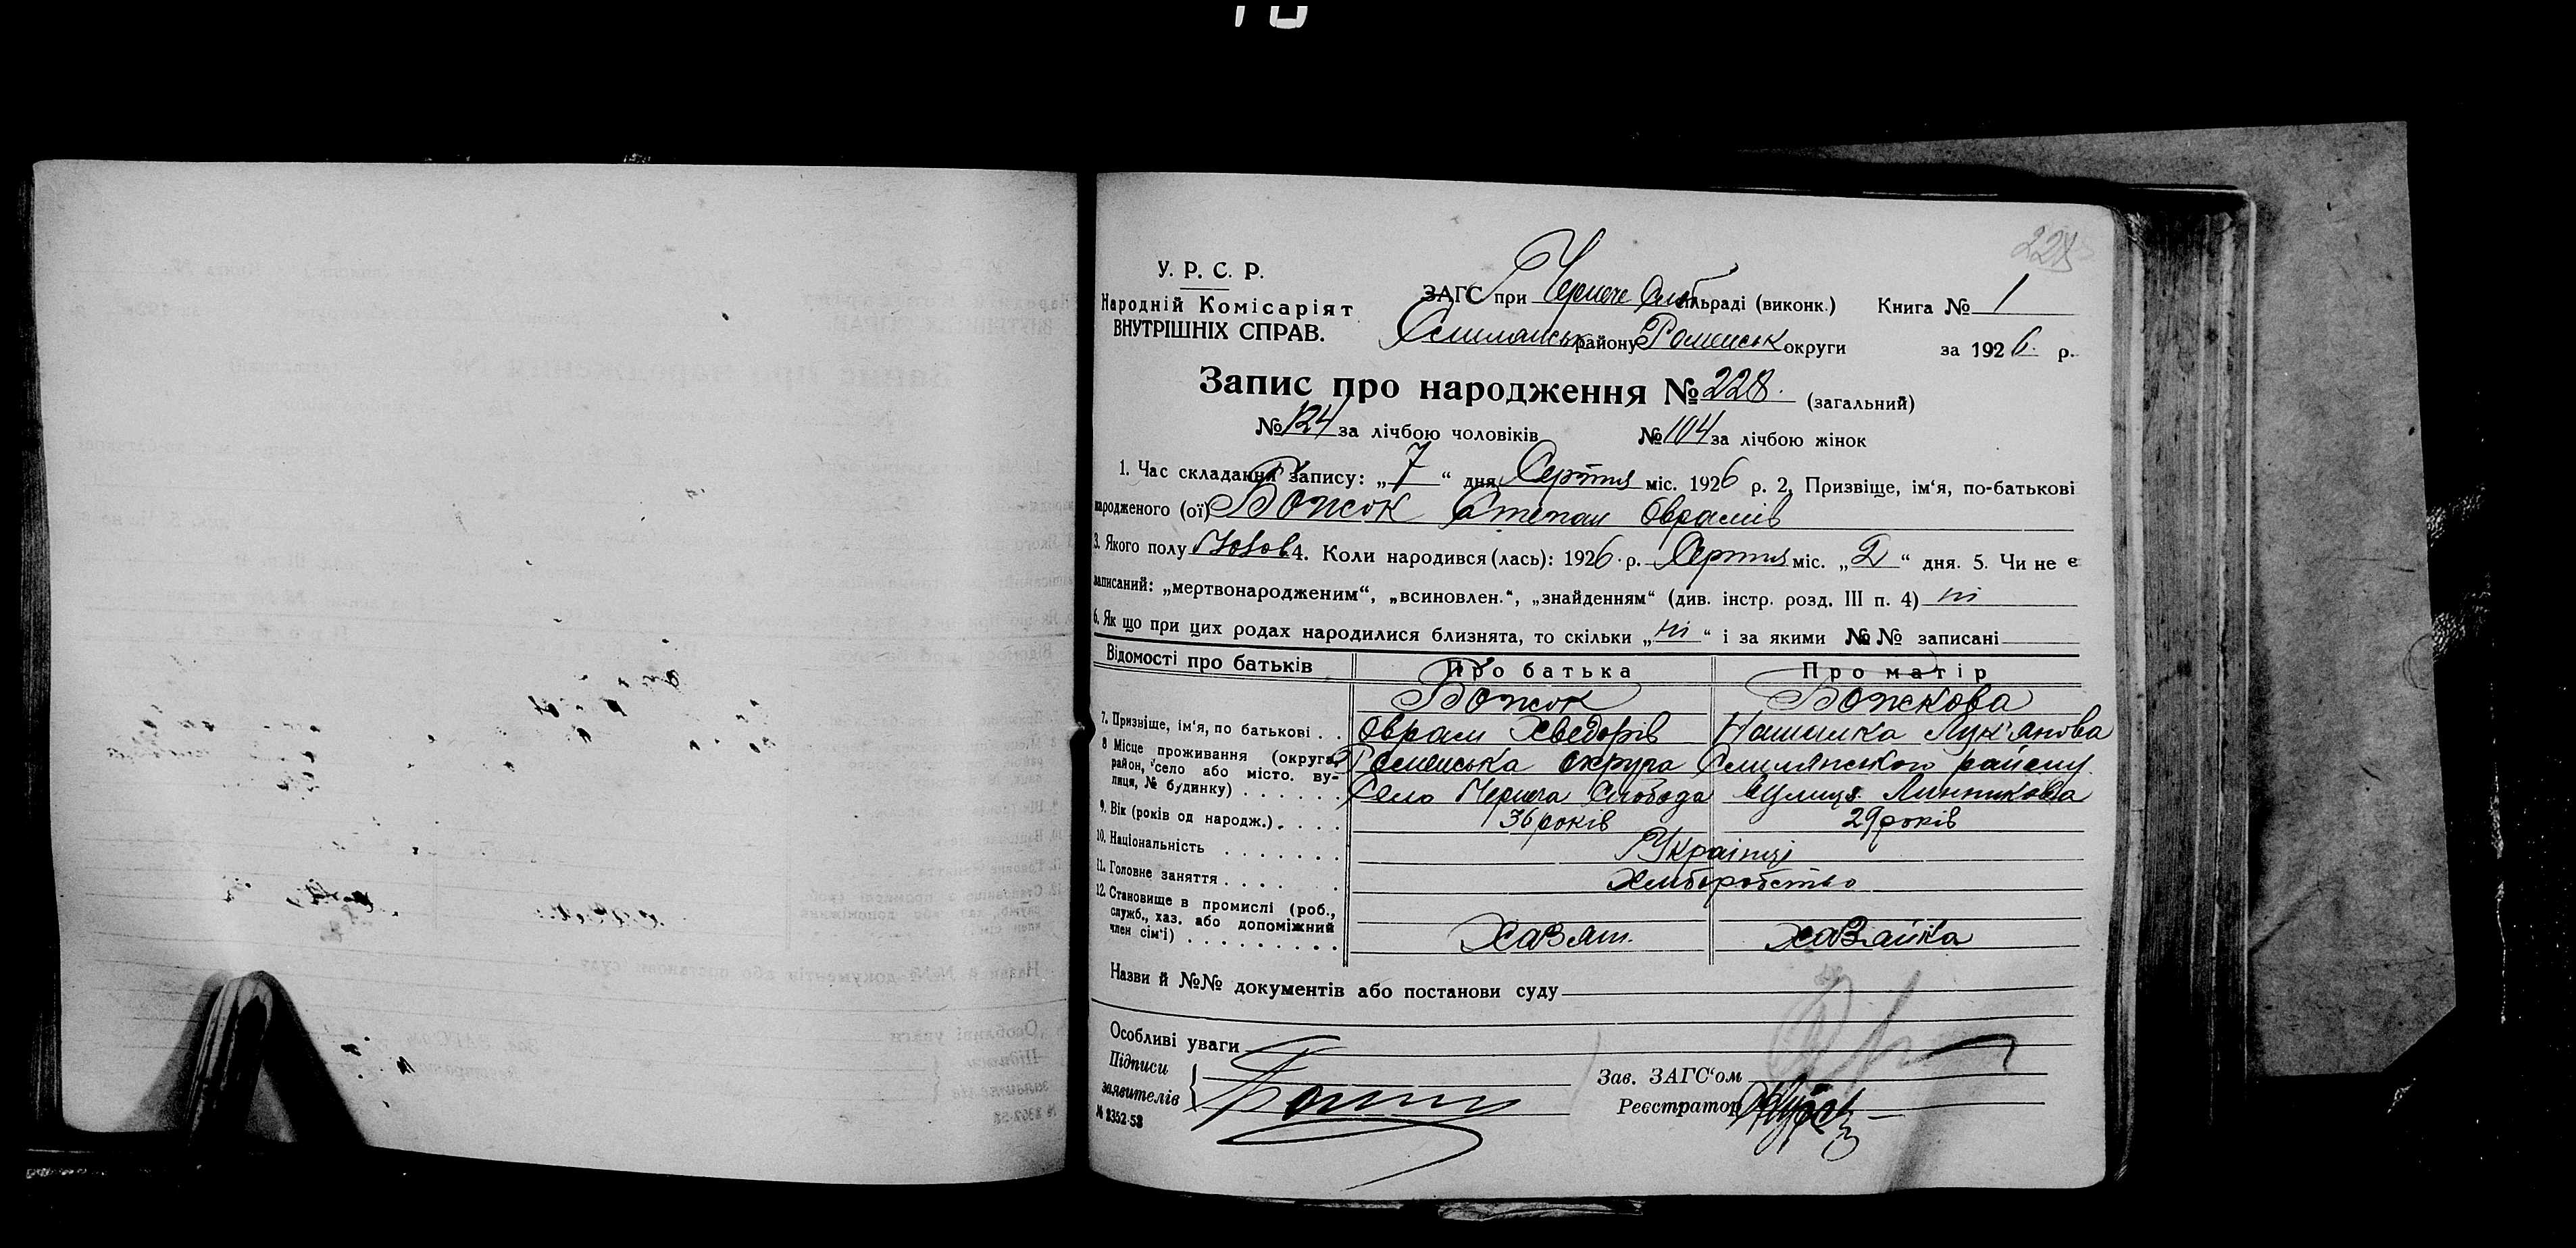 228
У. Р. С. Р.
Народній Комісаріят
ВНУТРІШНІХ СПРАВ.
ЗАГС при Чернече Слоб сільраді (виконк.) Книга № 1
Смілянськ району Роменськ округи за 1926 р.
Запис про народження № 228. (загальний)
№ 124 за лічбою чоловіків № 104 за лічбою жінок
1. Час складання запису: „7“ дня Серпня міс. 1926 р. 2. Призвіще, ім'я, по-батькові
народженого (ої) Божок Степан Оврамів
3. Якого полу Чолов. 4. Коли народився (лась): 1926 р. Серпня міс. „2“ дня. 5. Чи не є
записаний: „мертвонародженим“, „всиновлен.“, „знайденням“ (див. інстр. розд. III п. 4) ні
6. Як що при цих родах народилися близнята, то скільки „ні“ і за якими №№ записані
Відомості про батьків Про батька Про матір
Божок Божкова
7. Призвіще, ім'я, по батькові . . Оврам Хведорів Лук'янова
8 Місце проживання (округа, Роменська округа Смілянського району
район, село або місто. ву-
лиця, № будинку) . . . . . . Село Чернеча Слобода вулиця
9. Вік (років од народж.) . . . . 36 років 29 років
10. Національність . . . . . . . Українці
11. Головне заняття . . . . . Хліборобство
12. Становище в промислі (роб.,
служб., хаз. або допоміжний
член сім'ї) . . . . . . . . . Хазяін. хазяйка
Назви й №№ документів або постанови суду
Особливі уваги
Підписи
заявителів Божок
Зав. ЗАГС'ом
Реєстратор
№ 8352-58